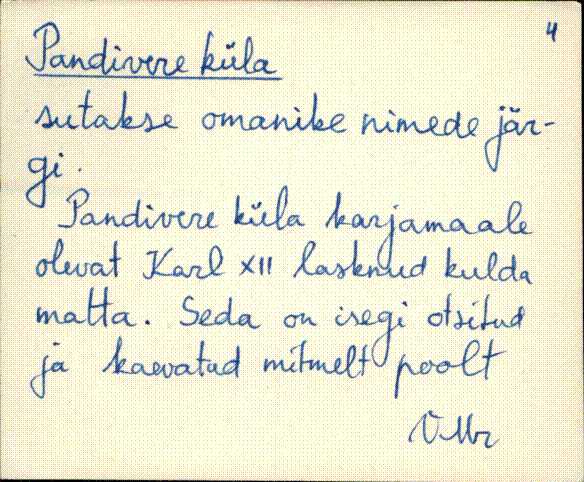 4
Pandivere küla
sutakse omanike nimede jär-
gi.
Pandivere küla karjamaale
olevat Karl XII lasknud kulda
matta. Seda on isegi otsitud
ja kaevatud mitmelt poolt